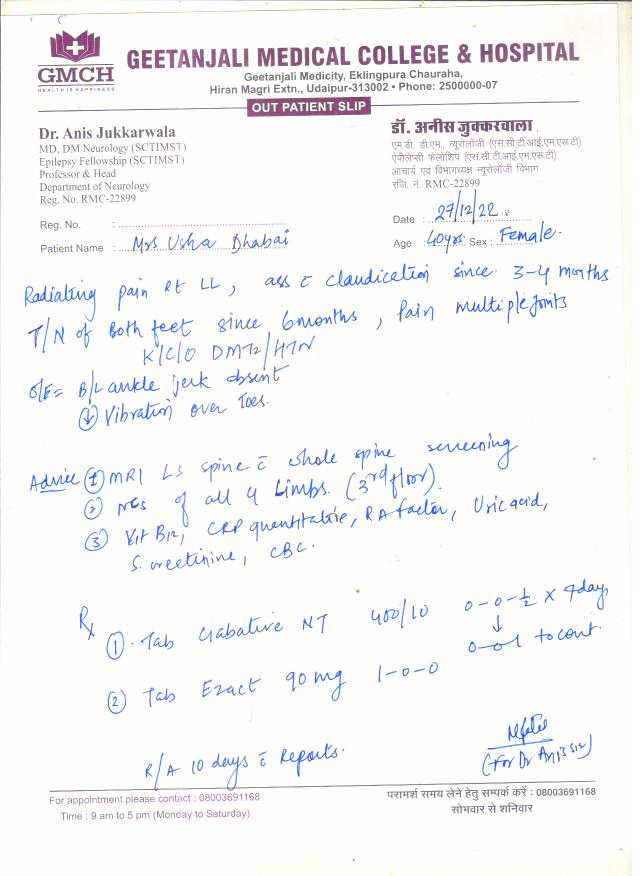 GMCH
HEALTH IS HAPPINESS
GEETANJALI MEDICAL COLLEGE & HOSPITAL
Geetanjali Medicity, Eklingpura Chauraha,
Hiran Magri Extn., Udaipur-313002 • Phone: 2500000-07
OUT PATIENT SLIP
Dr. Anis Jukkarwala
MD, DM Neurology (SCTIMST)
Epilepsy Fellowship (SCTIMST)
Professor & Head
Department of Neurology
Reg. No. RMC-22899
डॉ. अनीस जुक्करवाला
एम.डी. डी.एम., न्यूरोलॉजी (एस.सी.टी.आई.एम.एस.टी)
ऐपीलेप्सी फेलोशिप (एस.सी.टी.आई.एम.एस.टी)
आचार्य एवं विभागाध्यक्ष न्यूरोलॉजी विभाग
रजि. नं. RMC-22899
Reg. No. :
Date : 27/12/22
Patient Name : Mrs Usha Dhabai
Age : 40yrs Sex : Female.
Radiating pain Rt LL, ass c̄ claudication since 3-4 months
T/N of Both feet since 6months, Pain multiple joints
K/C/O DMT2/HTN
O/E= B/L ankle jerk absent
↓ Vibration over Toes.
Advice ① MRI LS spine c̄ whole spine screening
② NCS of all 4 Limbs. (3rd floor).
③ Vit B12, CRP quantitative, RA factor, Uric acid,
S. creetinine, CBC.
Rx
① Tab Gabative NT 400/10 0-0-½ x 7days
↓
0-0-1 to cont.
② Tab Ezact 90mg 1-0-0
R/A 10 days c̄ Reports.
(For Dr Anis sir)
For appointment please contact : 08003691168
Time : 9 am to 5 pm (Monday to Saturday)
परामर्श समय लेने हेतु सम्पर्क करें : 08003691168
सोमवार से शनिवार